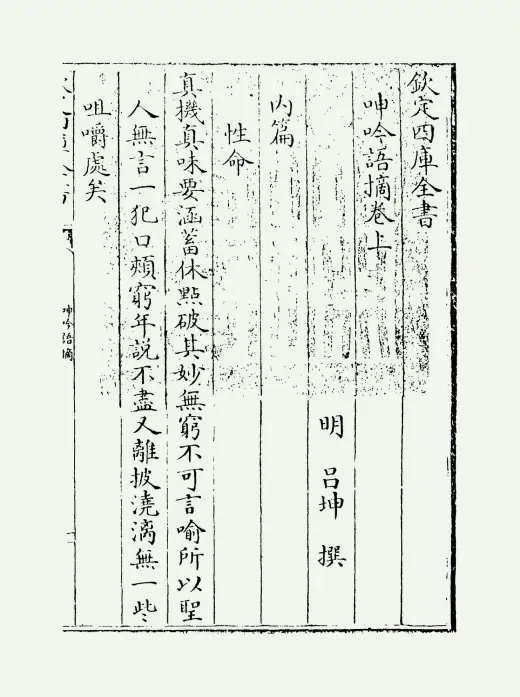 欽定四庫全書
呻吟語摘卷上
明 呂坤 撰
內篇
性命
真機真味要涵蓄休點破其妙無窮不可言喻所以聖
人無言一犯口頰窮年說不盡又離披澆漓無一些
咀嚼處矣
呻吟語摘